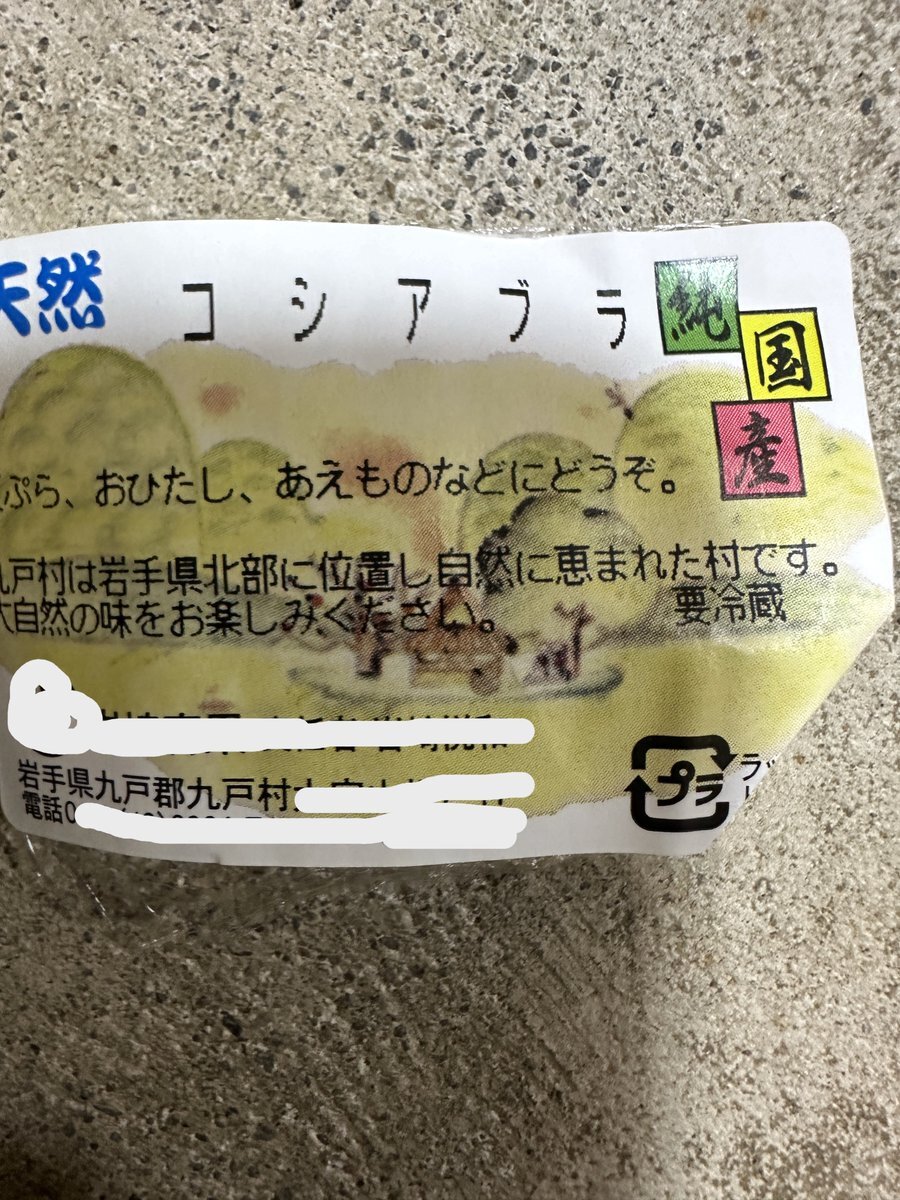 天然 コシアブラ 純国産
ぷら、おひたし、あえものなどにどうぞ。
九戸村は岩手県北部に位置し自然に恵まれた村です。
大自然の味をお楽しみください。 要冷蔵
岩手県九戸郡九戸村
電話0
プラ